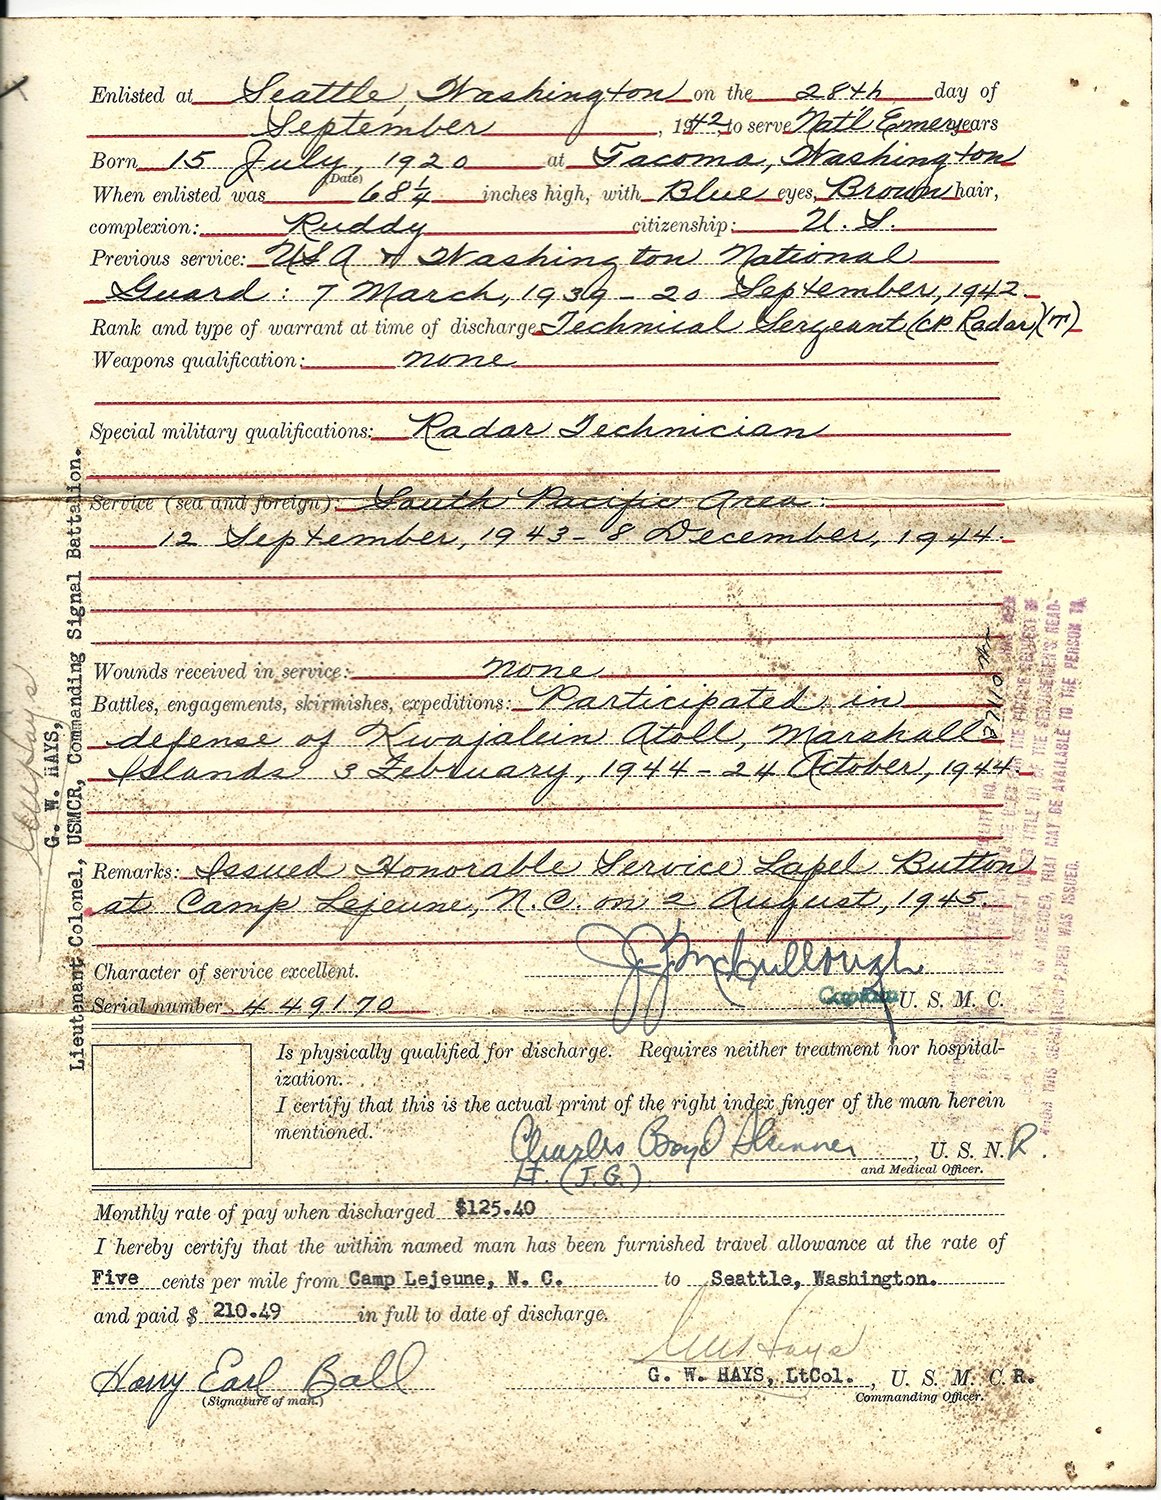 Enlisted at Seattle, Washington on the 28th day of
September, 1942, to serve Nat'l Emer years
Born 15 July, 1920 at Tacoma, Washington
(Date)
When enlisted was 68 1/4 inches high, with Blue eyes, Brown hair,
complexion: Ruddy citizenship: U. S.
Previous service: USA & Washington National
Guard: 7 March, 1939 - 20 September, 1942.
Rank and type of warrant at time of discharge Technical Sergeant (CP Radar)(T)
Weapons qualification: none
Special military qualifications: Radar Technician
Service (sea and foreign): South Pacific Area:
12 September, 1943 - 8 December, 1944.
Wounds received in service: none
Battles, engagements, skirmishes, expeditions: Participated in
defense of Kwajalein Atoll, Marshall
Islands 3 February, 1944 - 24 October, 1944.
Remarks: Issued Honorable Service Lapel Button
at Camp Lejeune, N.C. on 2 August, 1945.
Character of service excellent.
J.J. McCullough
Serial number 449170
Captain U. S. M. C.
Is physically qualified for discharge. Requires neither treatment nor hospital-
ization.
I certify that this is the actual print of the right index finger of the man herein
mentioned.
Charles Boyd Skinner, U. S. N. R.
Lt. (J.G.)
and Medical Officer.
Monthly rate of pay when discharged $125.40
I hereby certify that the within named man has been furnished travel allowance at the rate of
Five cents per mile from Camp Lejeune, N. C. to Seattle, Washington.
and paid $ 210.49 in full to date of discharge.
G W Hays
Harry Earl Ball
(Signature of man.)
G. W. HAYS, LtCol., U. S. M. C. R.
Commanding Officer.
G W Hays
G. W. HAYS,
Lieutenant Colonel, USMCR, Commanding Signal Battalion.
OF THE SERVICEMEN'S READ-
AS AMENDED, THAT MAY BE AVAILABLE TO THE PERSON TO
PAPER WAS ISSUED.